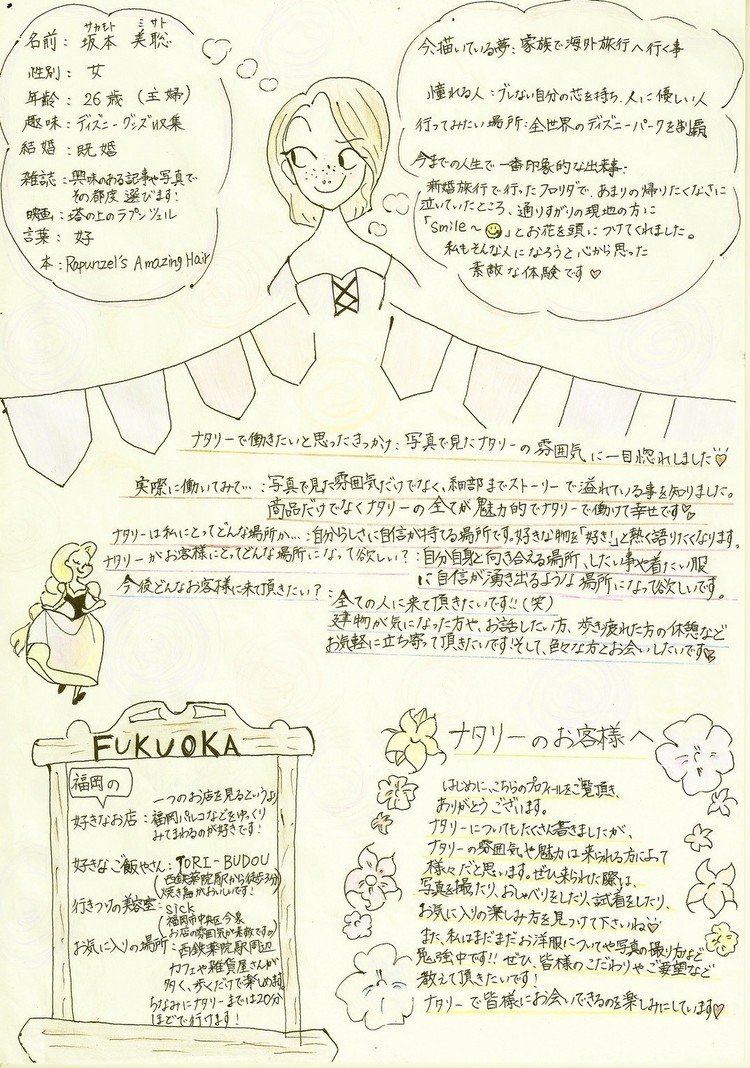 サカモト ミサト
名前: 坂本 美聡
性別: 女
年齢: 26歳 (主婦)
趣味: ディズニーグッズ収集
結婚: 既婚
雑誌: 興味のある記事や写真で
その都度 選びます!
映画: 塔の上のラプンツェル
言葉: 好
本: Rapunzel's Amazing Hair
今、描いている夢: 家族で海外旅行へ行く事
憧れる人: ブレない自分の芯を持ち、人に優しい人
行ってみたい場所: 全世界のディズニーパークを制覇
今までの人生で一番印象的な出来事:
新婚旅行で行ったフロリダで、あまりの帰りたくなさに
泣いていたところ、通りすがりの現地の方に
「smile〜😃」とお花を頭につけてくれました。
私もそんな人になろうと心から思った
素敵な体験です♡
ナタリーで働きたいと思ったきっかけ: 写真で見たナタリーの雰囲気に一目惚れしました♡
実際に働いてみて…: 写真で見た雰囲気だけでなく、細部までストーリーで溢れている事を知りました。
商品だけでなくナタリーの全てが魅力的でナタリーで働けて幸せです♡
ナタリーは私にとってどんな場所か…: 自分らしさに自信が持てる場所です。好きな物を「好き!」と熱く語りたくなります。
ナタリーがお客様にとってどんな場所になって欲しい?: 自分自身と向き合える場所、したい事や着たい服
に自信が湧き出るような場所になって欲しいです。
今後どんなお客様に来て頂きたい?: 全ての人に来て頂きたいです!!(笑)
建物が気になった方や、お話したい方、歩き疲れた方の休憩など
お気軽に立ち寄って頂きたいです!そして、色々な方とお会いしたいです♡
FUKUOKA
福岡の
好きなお店: 一つのお店を見るというより
福岡パルコなどをゆっくり
みてまわるのが好きです!
好きなご飯やさん: TORI-BUDOU
(西鉄薬院駅から徒歩3分)
(焼き鳥がおいしいです!)
行きつけの美容室: sick
福岡市中央区今泉
(お店の雰囲気が素敵ですの)
お気に入りの場所: 西鉄薬院駅周辺
カフェや雑貨屋さんが
多く、歩くだけで楽しめます
ちなみにナタリーまでは20分
ほどで行けます!
ナタリーのお客様へ
はじめに、こちらのプロフィールをご覧頂き、
ありがとうございます。
ナタリーについてもたくさん書きましたが、
ナタリーの雰囲気や魅力は来られる方によって
様々だと思います。ぜひ来られた際は、
写真を撮たり、おしゃべりをしたり、試着をしたり、
お気に入りの楽しみ方を見つけて下さいね♡
また、私はまだまだお洋服についてや写真の撮り方など
勉強中です!!ぜひ、皆様のこだわりやご要望など
教えて頂きたいです!
ナタリーで皆様にお会いできるのを楽しみにしています♡